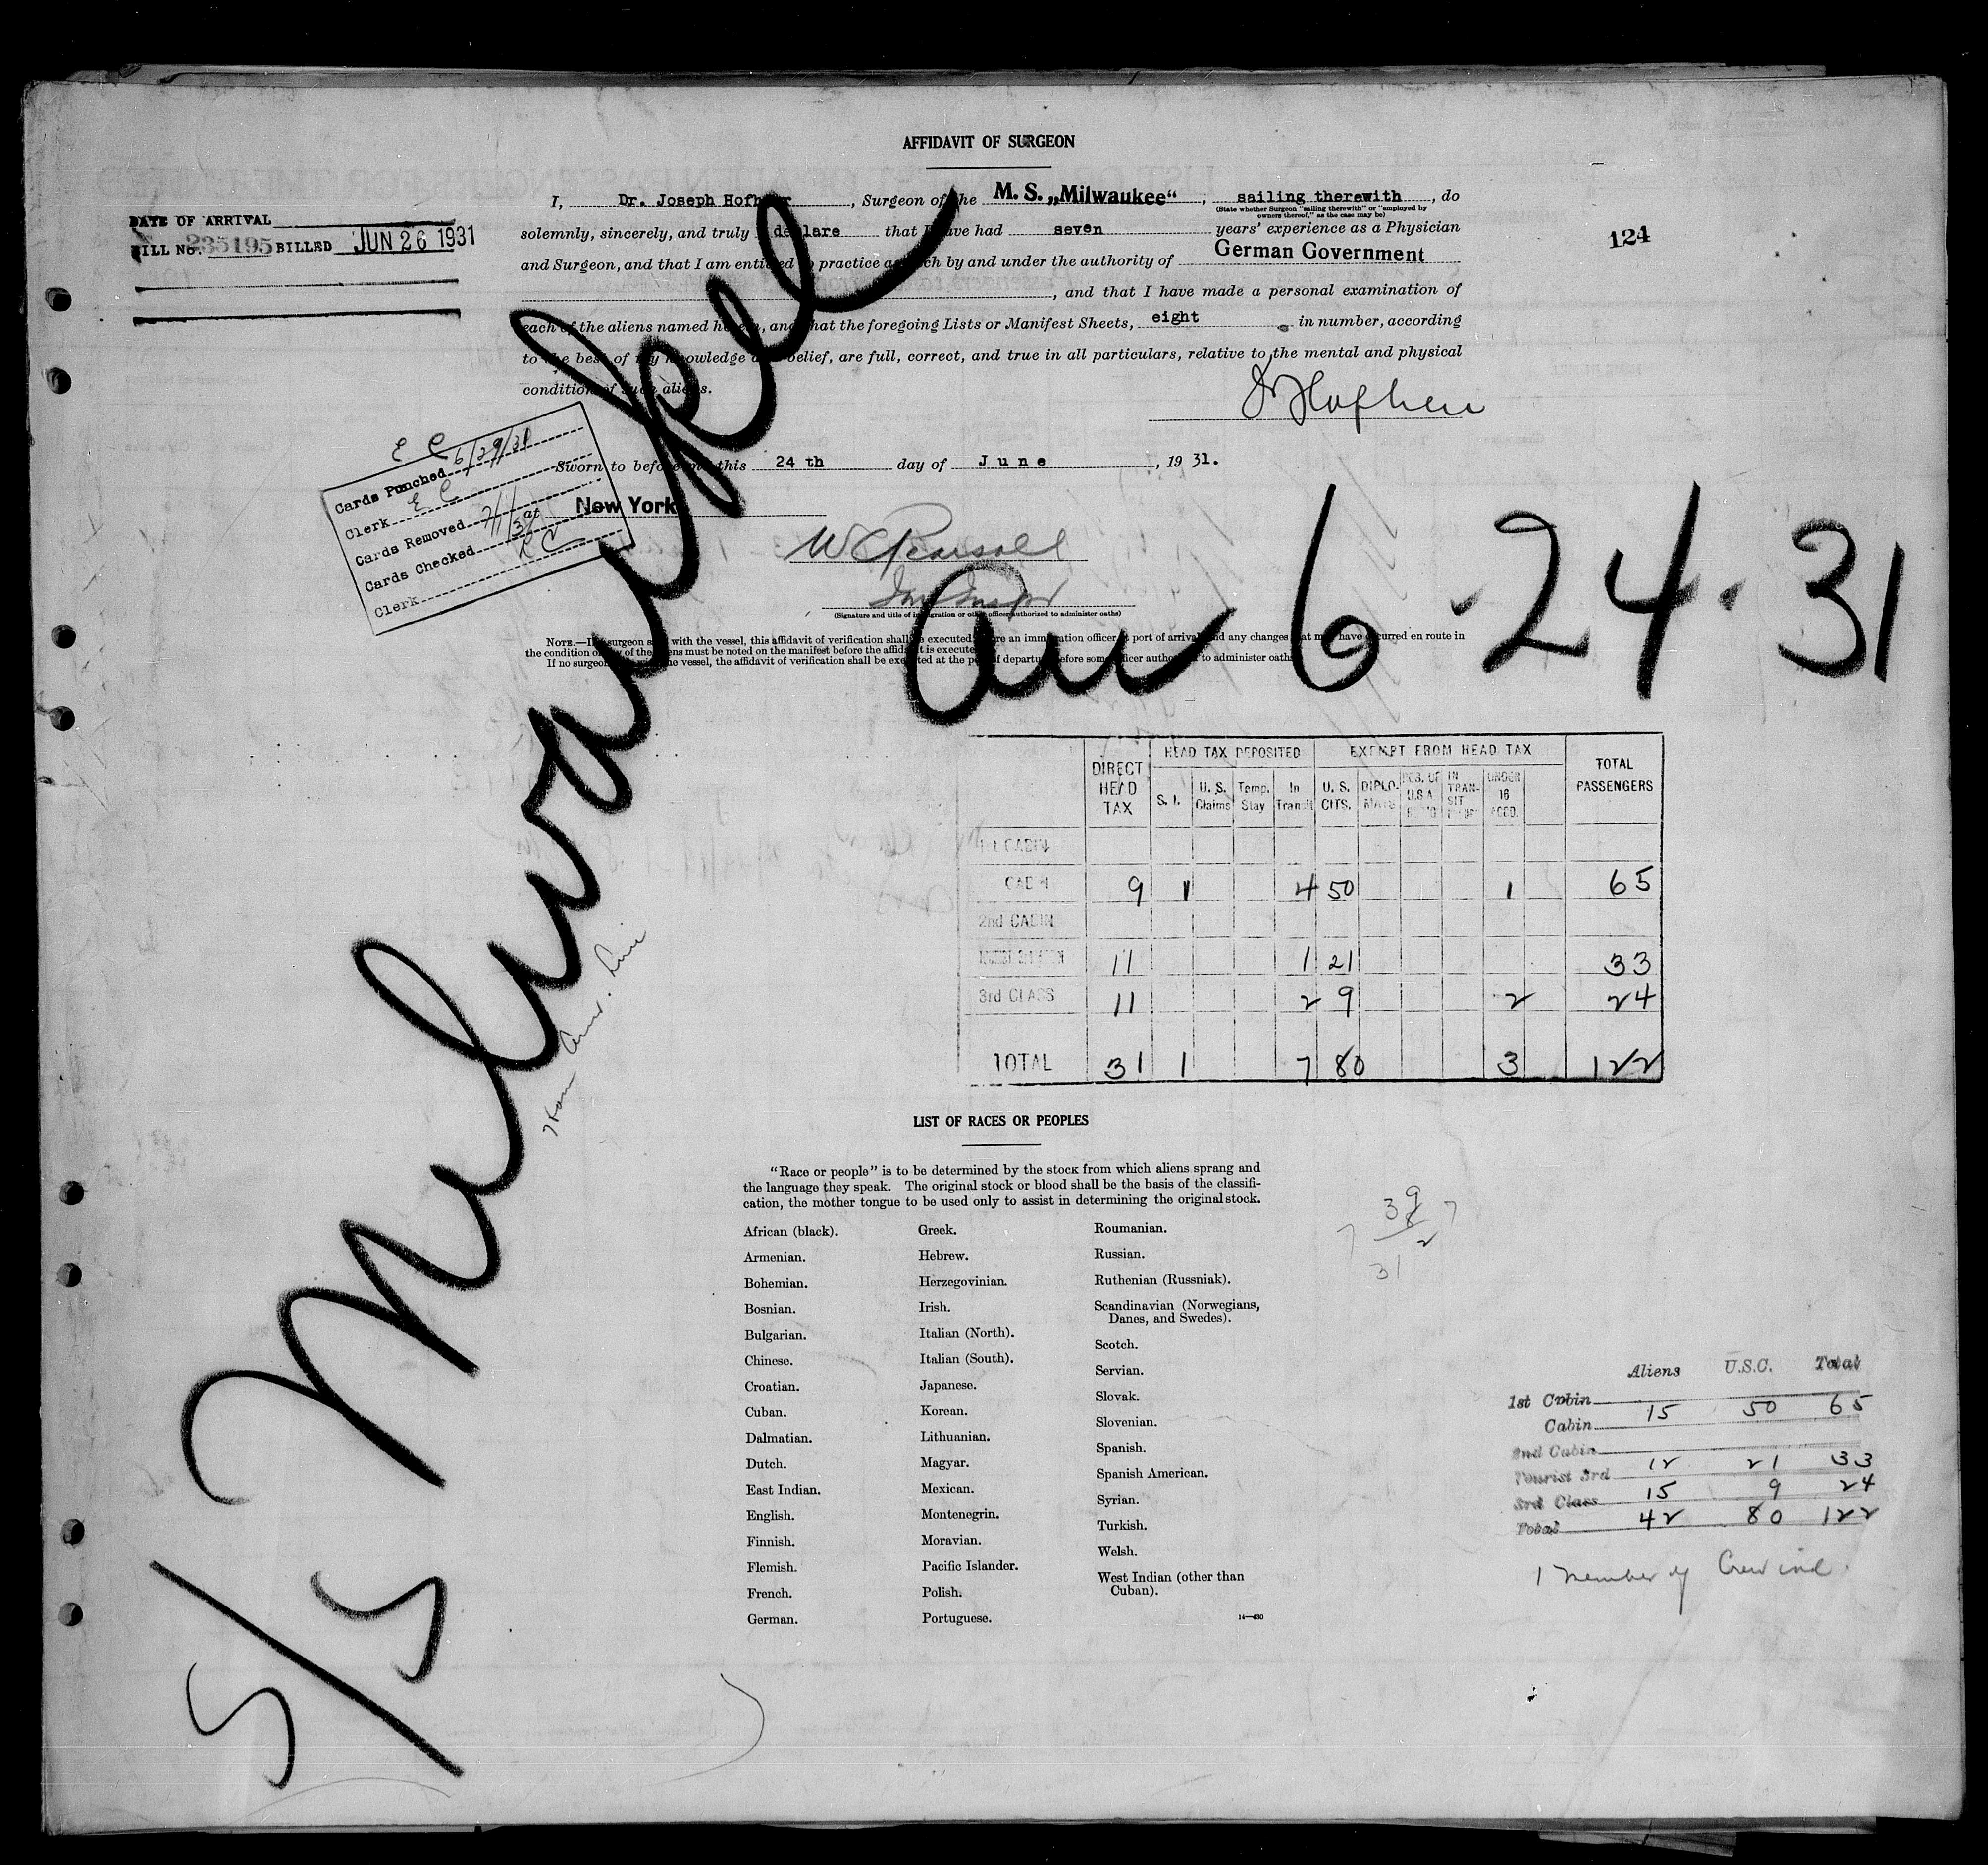 AFFIDAVIT OF SURGEON
I, Dr. Joseph , Surgeon of the M. S. „Milwaukee“, sailing therewith, do
(State whether Surgeon "sailing therewith" or "employed by
owners thereof," as the case may be)
solemnly, sincerely, and truly declare that I have had seven years' experience as a Physician
and Surgeon, and that I am entitled to practice as such by and under the authority of German Government
, and that I have made a personal examination of
each of the aliens named herein, and that the foregoing Lists or Manifest Sheets, eight in number, according
to the best of my knowledge and belief, are full, correct, and true in all particulars, relative to the mental and physical
condition of such aliens.
DATE OF ARRIVAL
BILL No. 235195 BILLED JUN 26 1931
124
Sworn to before me this 24 th day of June, 19 31.
at New York
E C
Cards Punched 6/29/31
Clerk E C
Cards Removed
Cards Checked
Clerk
(Signature and title of immigration or other officer authorized to administer oaths)
NOTE.—If a surgeon sails with the vessel, this affidavit of verification shall be executed before an immigration officer at port of arrival and any changes that may have occurred en route in
the condition of any of the aliens must be noted on the manifest before the affidavit is executed.
If no surgeon sails with the vessel, the affidavit of verification shall be executed at the port of departure before some officer authorized to administer oaths.
S/S Milwaukee
Arr 6-24-31
Ham Amer. Line
DIRECT HEAD TAX HEAD TAX DEPOSITED EXEMPT FROM HEAD TAX TOTAL PASSENGERS
S. I. U. S. Claims Temp. Stay In Transit U. S. CITS. DIPLO-MATS IN TRAN-SIT UNDER 16 ACCD.
1st CABIN
CABIN 9 1 4 50 1 65
2nd CABIN
TOURIST 3rd CABIN 11 1 21 33
3rd CLASS 11 2 9 2 24
TOTAL 31 1 7 80 3 122
LIST OF RACES OR PEOPLES
"Race or people" is to be determined by the stock from which aliens sprang and
the language they speak. The original stock or blood shall be the basis of the classifi-
cation, the mother tongue to be used only to assist in determining the original stock.
African (black).
Armenian.
Bohemian.
Bosnian.
Bulgarian.
Chinese.
Croatian.
Cuban.
Dalmatian.
Dutch.
East Indian.
English.
Finnish.
Flemish.
French.
German.
Greek.
Hebrew.
Herzegovinian.
Irish.
Italian (North).
Italian (South).
Japanese.
Korean.
Lithuanian.
Magyar.
Mexican.
Montenegrin.
Moravian.
Pacific Islander.
Polish.
Portuguese.
Roumanian.
Russian.
Ruthenian (Russniak).
Scandinavian (Norwegians,
Danes, and Swedes).
Scotch.
Servian.
Slovak.
Slovenian.
Spanish.
Spanish American.
Syrian.
Turkish.
Welsh.
West Indian (other than
Cuban).
14—430
Aliens U.S.C. Total
1st Cabin
Cabin 15 50 65
2nd Cabin
Tourist 3rd 12 21 33
3rd Class 15 9 24
Total 42 80 122
1 member of Crew incl.